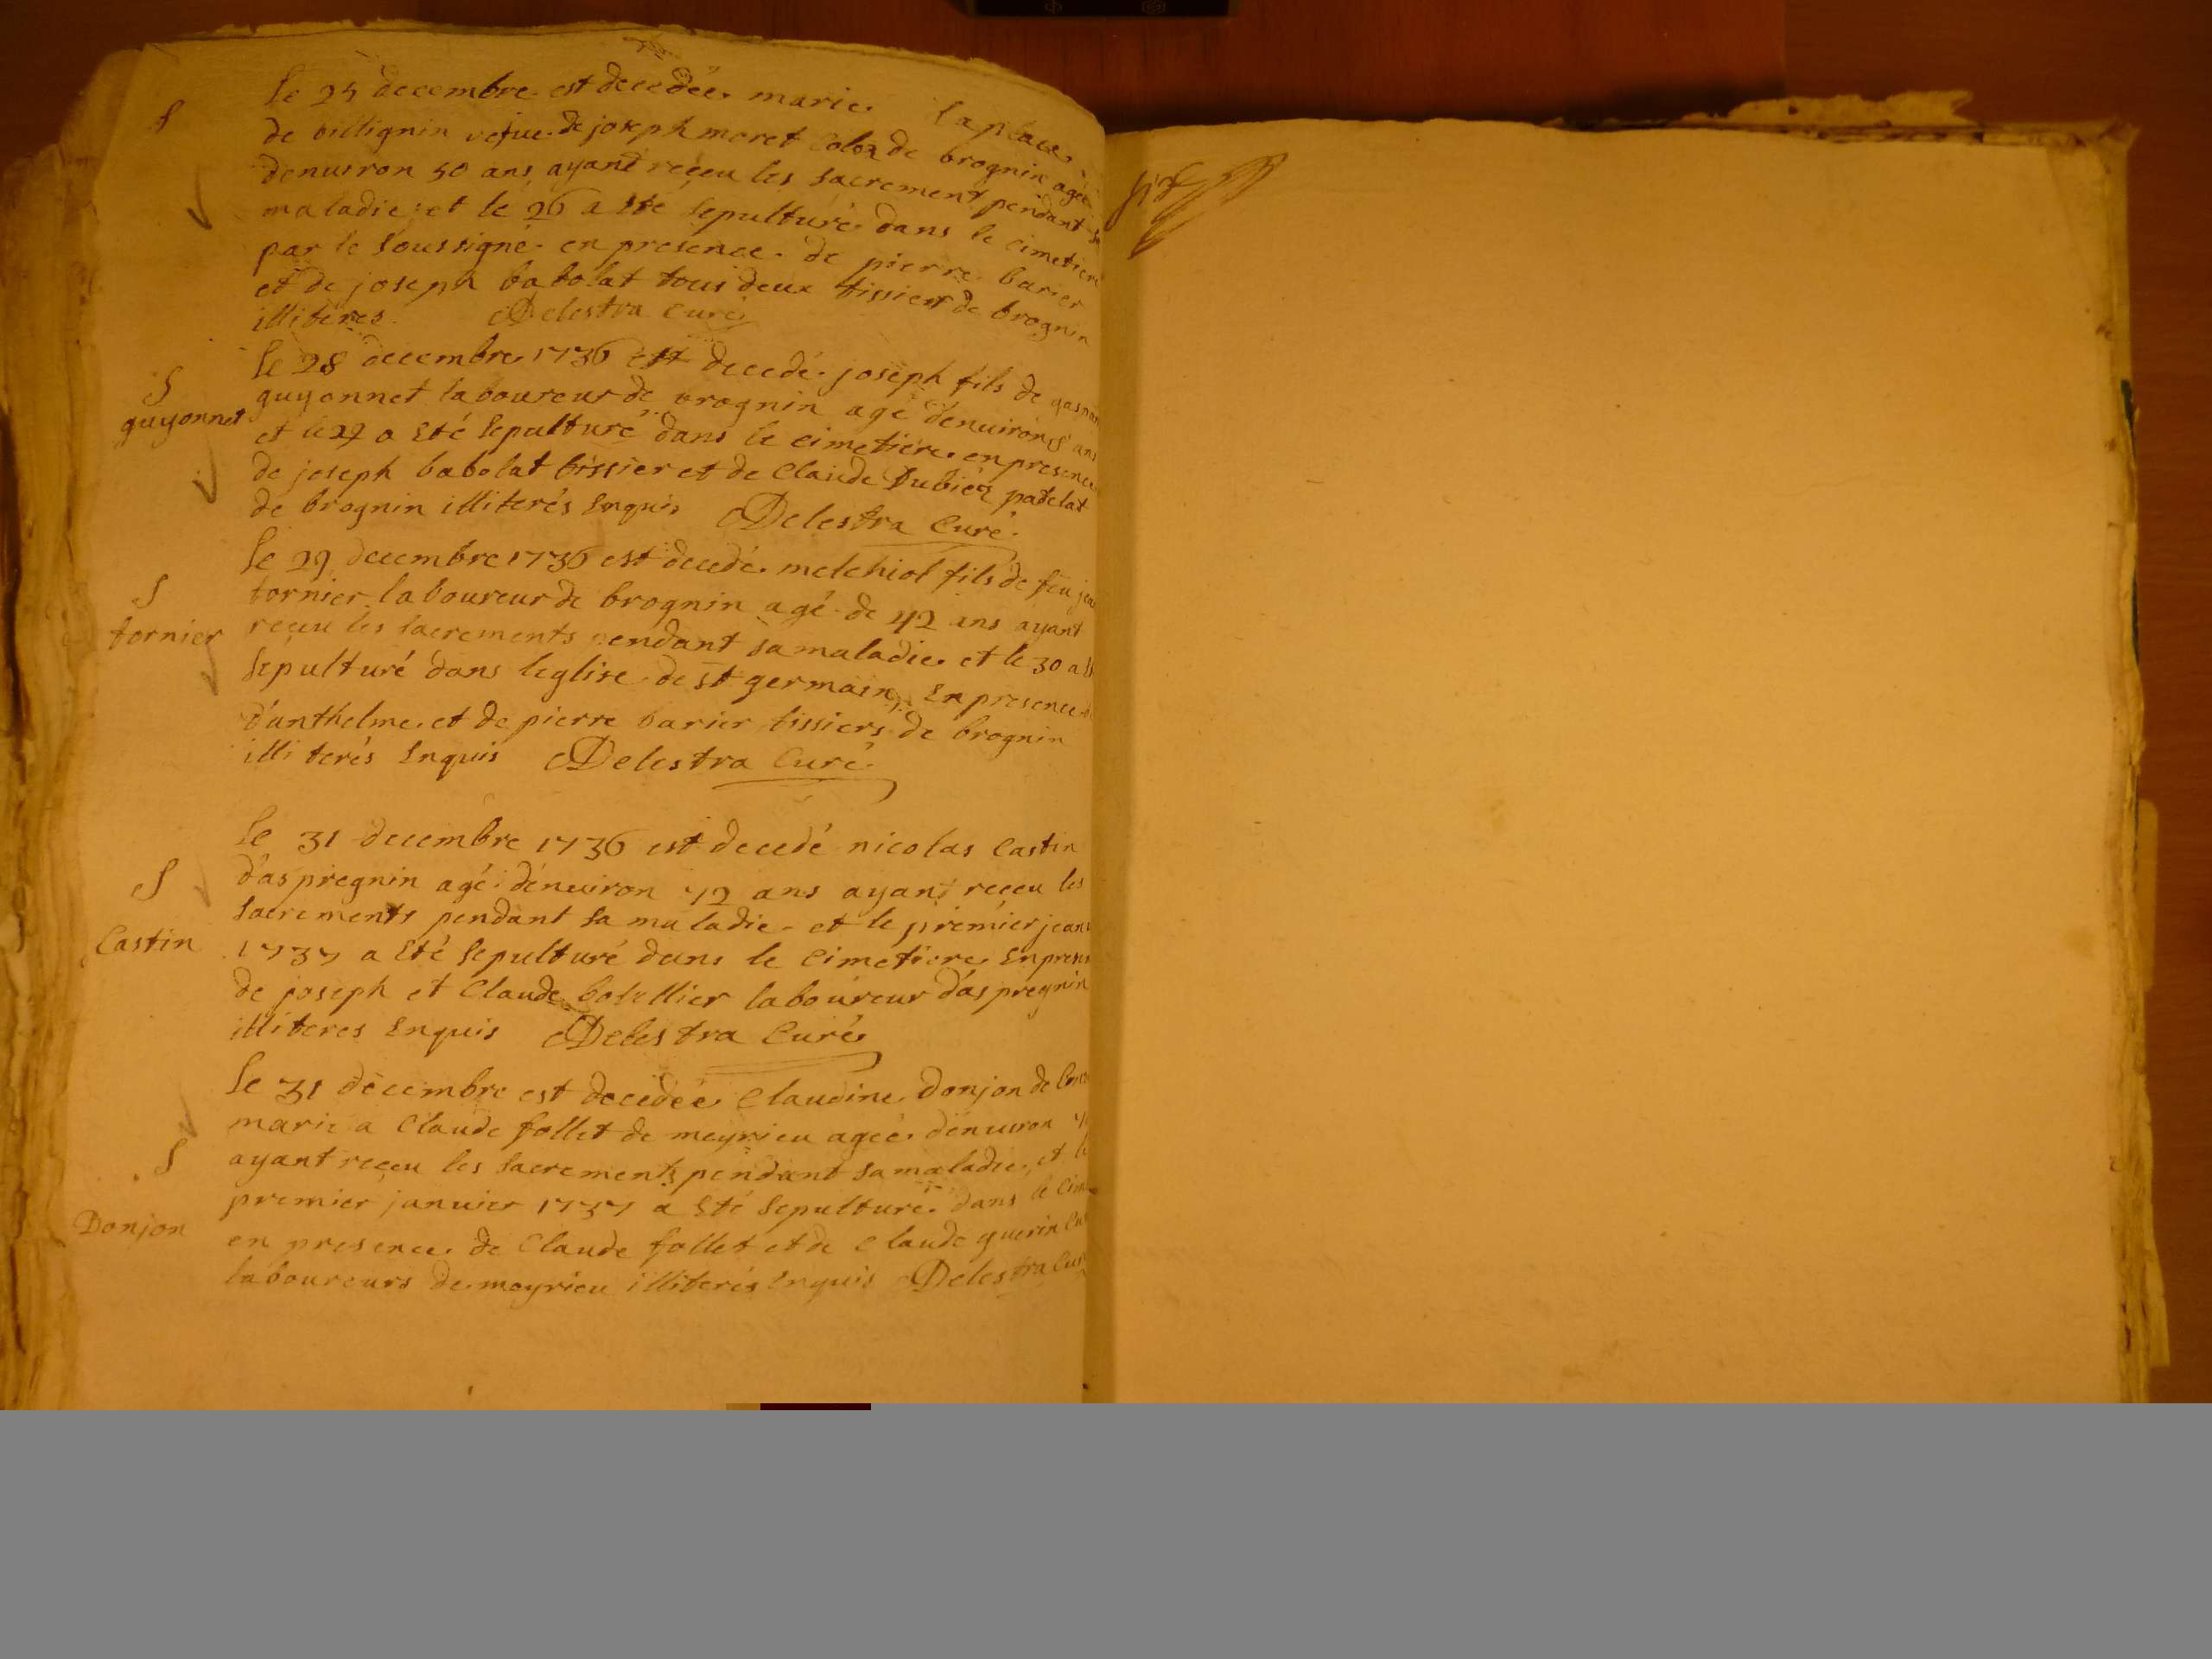 S
le 25 decembre est decedée marie laplace
de billignin vefue de joseph moret de brognin agée
denuiron 50 ans ayant reçeu les sacrement pendant sa
maladie et le 26 a Eté sepulturé dans le cimetiere
par le soussigné en presence de pierre barier
et de joseph babolat tous deux tissiers de brognin
illiteres Delestra Curé
S
guyonnet
le 28 decembre 1736 est decedé joseph fils de gaspar
guyonnet laboureur de brognin agé denuiron 8 ans
et le 29 a Eté sepulturé dans le cimetiere en presence
de joseph babolat tissier et de Claude Dubiez patelat
de brognin illiterés Enquis Delestra Curé
S
tornier
le 29 decembre 1736 est decedé melchiol fils de feu jea
tornier laboureur de brognin agé de 42 ans ayant
reçeu les sacrements pendant sa maladie et le 30 a Et
sepulturé dans leglise de st germain En presence
d'anthelme et de pierre barier tissiers de brognin
illiterés Enquis Delestra Curé
S
Castin
le 31 decembre 1736 est decedé nicolas Castin
d'aspregnin agé dénuiron 72 ans ayant reçeu les
sacrements pendant sa maladie et le premier janu
1737 a Eté sepulturé dans le cimetiere En presen
de joseph et Claude botellier laboureur d'aspregnin
illiteres Enquis Delestra Curé
S
Donjon
le 31 decembre est decedée Claudine Donjon de
marie a Claude follet de meyrieu agée dénuiron
ayant reçeu les sacrements pendant sa maladie et le
premier januier 1737 a Eté sepulturé dans le cim
en presence de Claude follet et de Claude guerin
laboureurs de meyrieu illiterés Enquis Delestra Curé